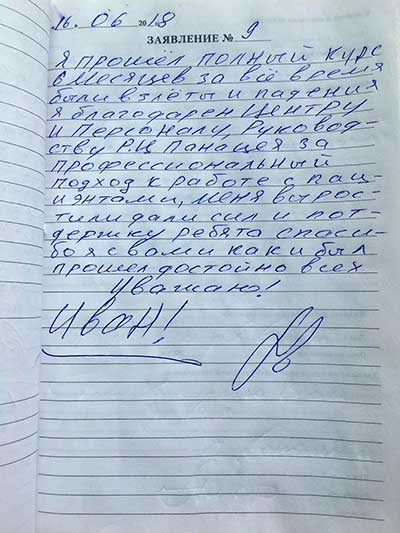 16. 06 2018
ЗАЯВЛЕНИЕ № 9
Я прошел полный курс
6 месяцев за всё время
были взлёты и падения
я благодарен Центру
и персоналу, Руковод-
ству Р.Ц Панацея за
профессиональный
подход к работе с пац-
иэнтами, меня вырос-
тили дали сил и пот-
держку ребята спаси-
бо я с вами как и был
прошел достойно всех
Уважаю!
Иван!